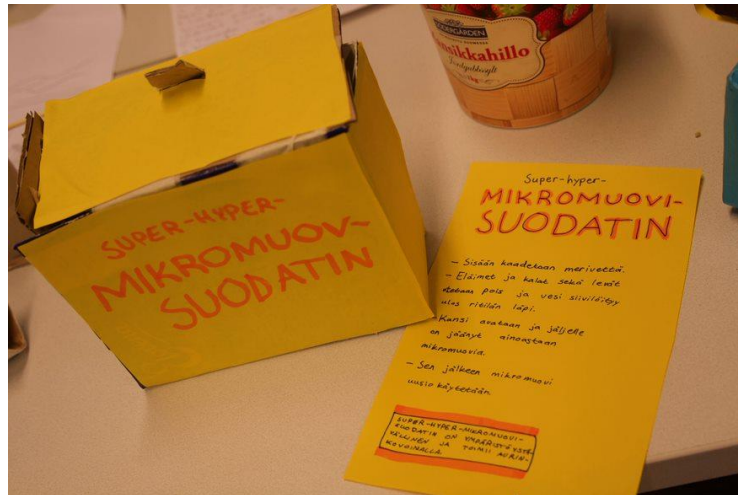 SUPER-HYPER-
MIKROMUOV-
SUODATIN
GARDEN
sikkahillo
Jordgubbssylt
Super-hyper-
MIKROMUOVI-
SUODATIN
- Sisään kaadetaan merivettä.
- Eläimet ja kalat sekä levät
otetaan pois ja vesi siivilöityy
ulos ritilän läpi.
- Kansi avataan ja jäljelle
on jäänyt ainoastaan
mikromuovia.
- Sen jälkeen mikromuovi
uusio käytetään.
SUPER-HYPER-MIKROMUOVI-
SUODATIN ON YMPÄRISTÖYSTÄ-
VÄLLINEN JA TOIMII AURIN-
KOVOIMALLA